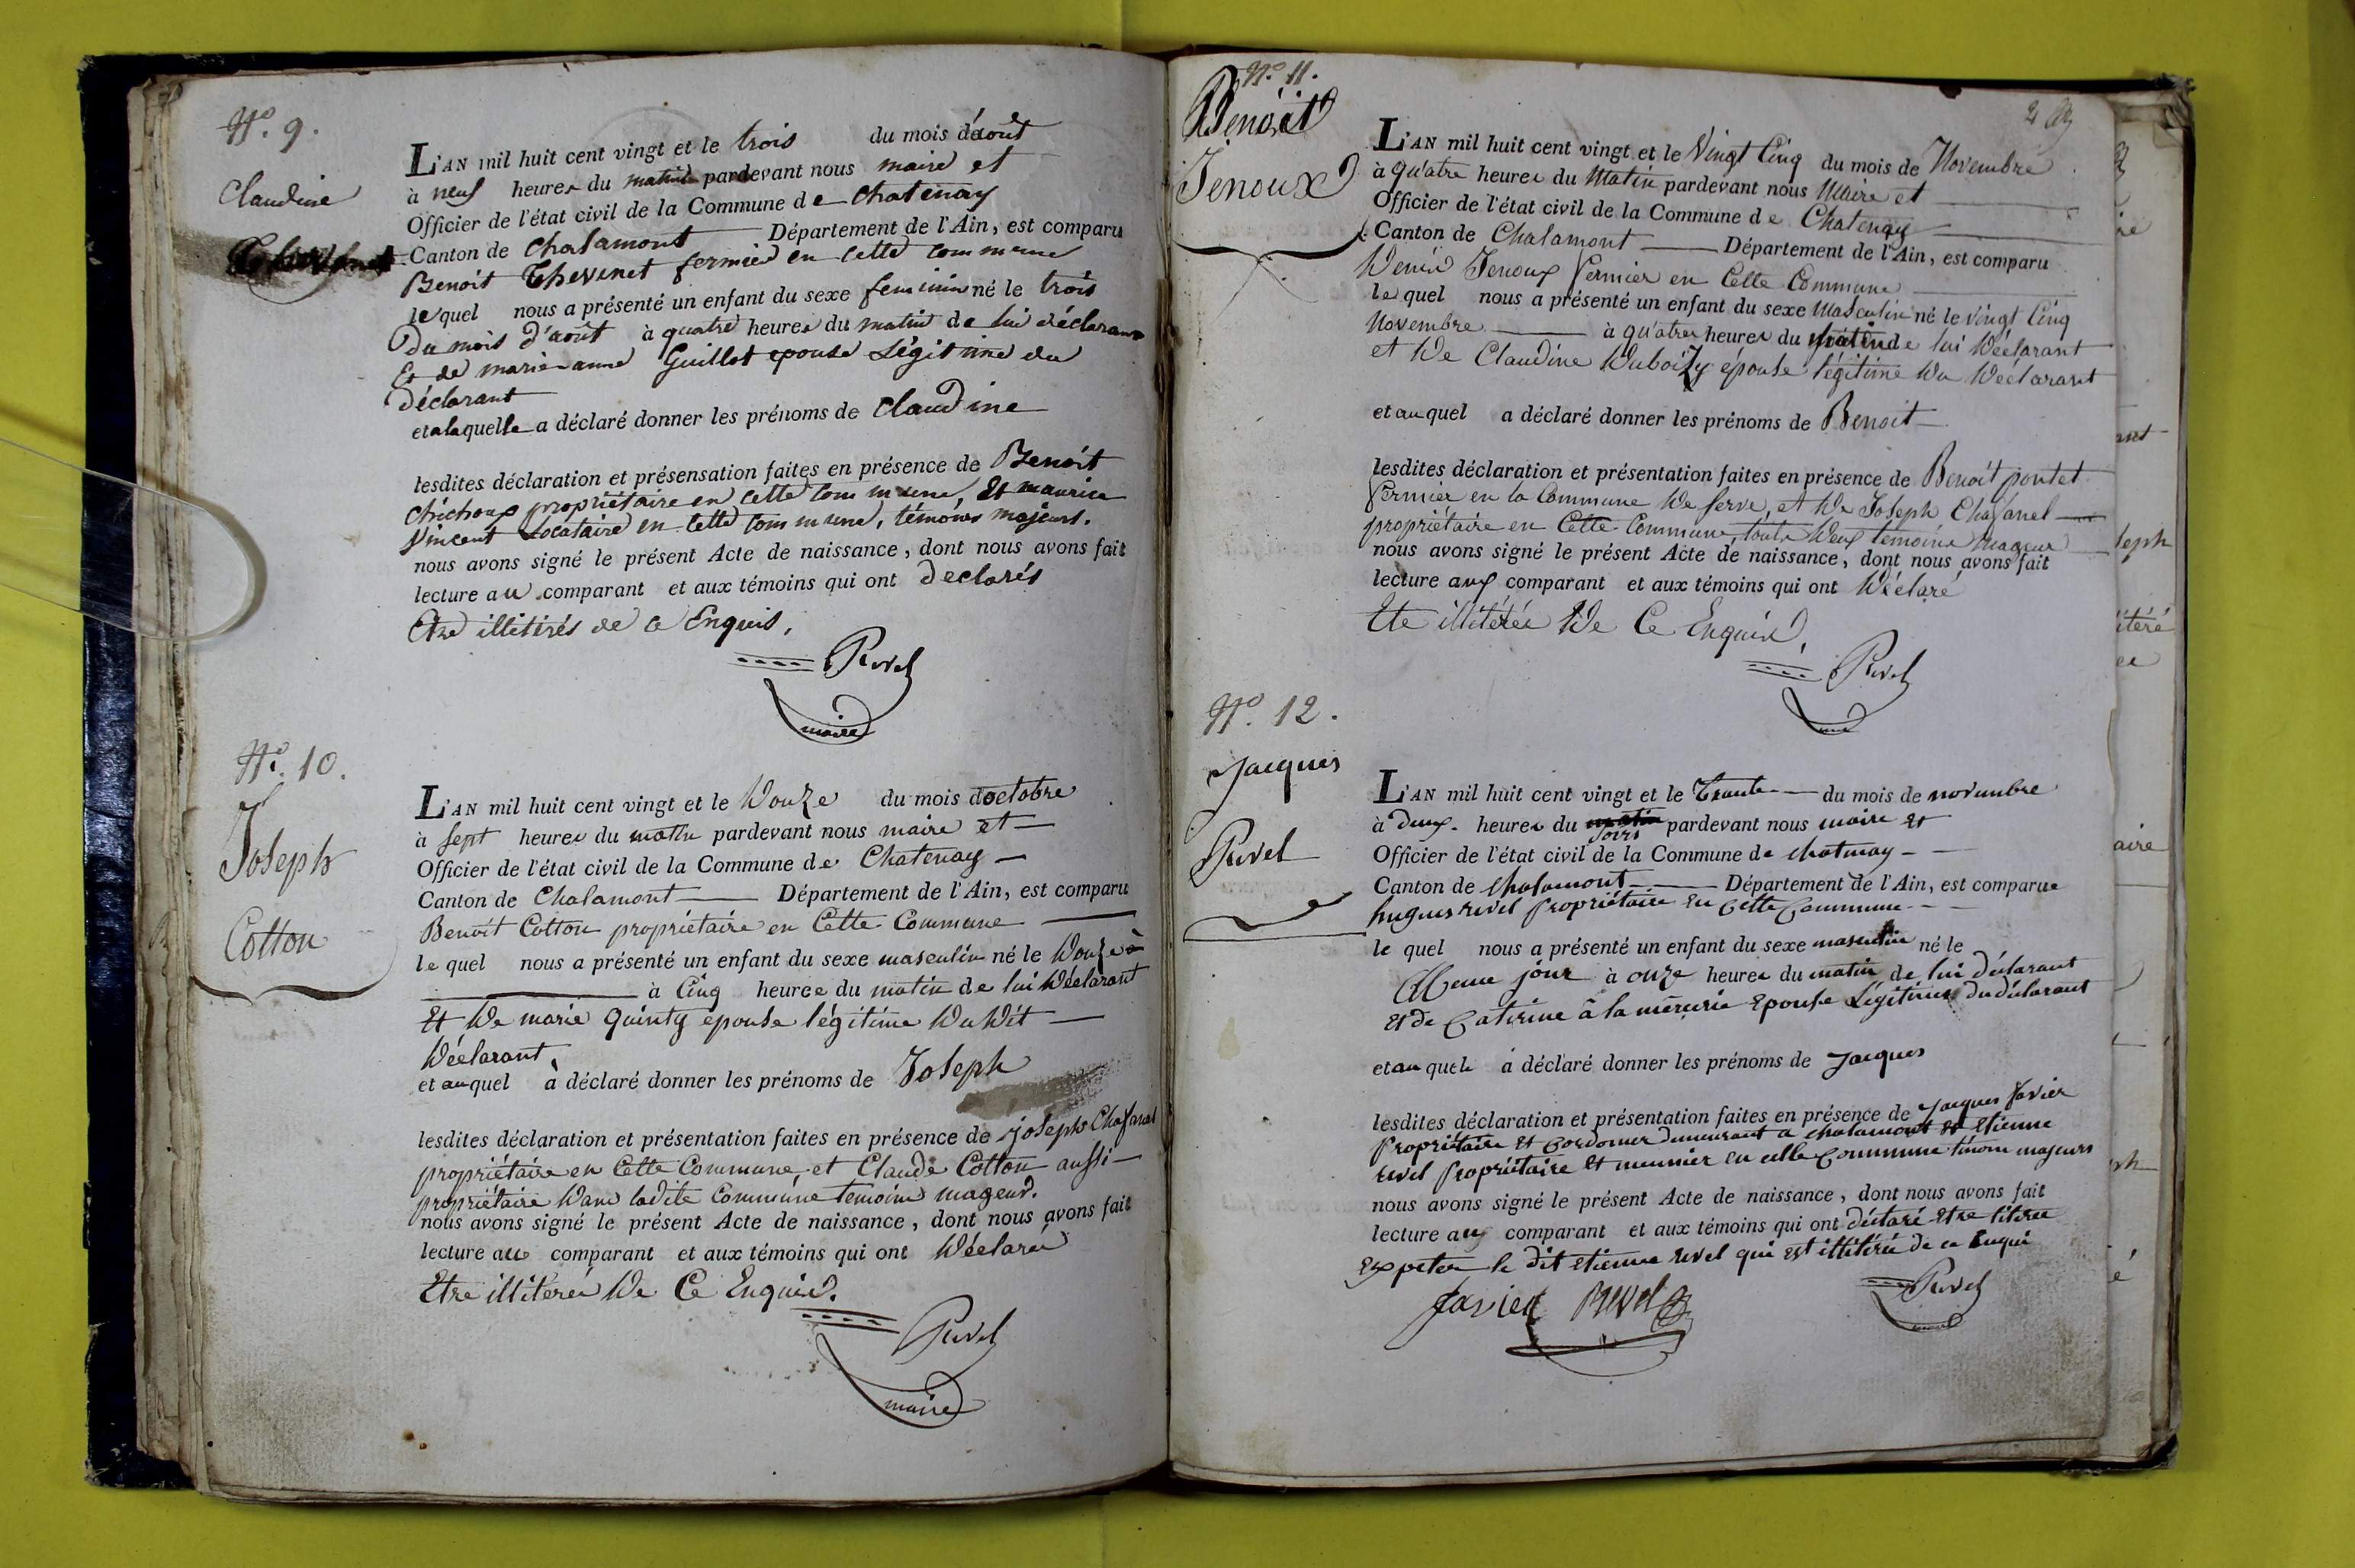 N.º 9.
Claudine
L'AN mil huit cent vingt et le trois du mois d'août
à neuf heures du matin pardevant nous maire et
Officier de l'état civil de la Commune de Chatenay
Canton de Chalamont Département de l'Ain, est comparu
Benoit Thevenet fermier en cette commune
lequel nous a présenté un enfant du sexe feminin né le trois
Du mois d'août à quatre heures du matin de lui déclarant
Et de marie-anne Guillot epouse Légitime du
Déclarant
et a laquelle a déclaré donner les prénoms de Claudine
lesdites déclaration et présensation faites en présence de Benoit
Chichoux propriétaire en cette commune, Et maurice
Vincent Locataire en cette commune, témoins majeurs.
nous avons signé le présent Acte de naissance, dont nous avons fait
lecture au comparant et aux témoins qui ont declarés
Etre illitirés de ce Enquis.
Revel
maire
N.º 10.
Joseph
Cotton
L'AN mil huit cent vingt et le Douze du mois doctobre
à sept heures du matin pardevant nous maire et
Officier de l'état civil de la Commune de Chatenay
Canton de Chalamont Département de l'Ain, est comparu
Benoit Cotton propriétaire en Cette Commune
le quel nous a présenté un enfant du sexe masculin né le Douze
à Cinq heures du matin de lui Déclarant
Et De marie Quinty epouse légitime Du Dit
Déclarant,
et auquel à déclaré donner les prénoms de Joseph
lesdites déclaration et présentation faites en présence de joseph Chafanel
propriétaire en Cette Commune, et Claude Cotton aussi
propriétaire Dans ladite Commune temoins mageurs.
nous avons signé le présent Acte de naissance, dont nous avons fait
lecture au comparant et aux témoins qui ont Déclarés
Etre illiterés De Ce Enquis.
Revel
maire
N.º 11.
Benoit
Jenoux
L'AN mil huit cent vingt et le Vingt Cinq du mois de Novembre
à qu'atre heures du Matin pardevant nous Maire et
Officier de l'état civil de la Commune de Chatenay
Canton de Chalamont Département de l'Ain, est comparu
Denis Jenoux Fermier en Cette Commune
le quel nous a présenté un enfant du sexe Masculin né le Vingt Cinq
Novembre à qu'atres heures du matin de lui Déclarant
et De Claudine Duboizy épouse légitime Du Déclarant
et au quel a déclaré donner les prénoms de Benoit
lesdites déclaration et présentation faites en présence de Benoit pontet
Fermier en la Commune De serve, et De Joseph Chafanel
propriétaire en Cette Commune, touts Deux temoins mageurs
nous avons signé le présent Acte de naissance, dont nous avons fait
lecture aux comparant et aux témoins qui ont Déclaré
Ete illiterés De Ce Enquis,
Revel
N.º 12.
Jacques
Revel
L'AN mil huit cent vingt et le Trante du mois de novembre
à deux heures du matin soirs pardevant nous maire Et
Officier de l'état civil de la Commune de Chatenay
Canton de Chalamont Département de l'Ain, est comparue
hugues revel Propriétaire En Cette Commune
le quel nous a présenté un enfant du sexe masculin né le
Meme jour à onze heures du matin de lui déclarant
Et de Caterine à la mercerie Epouse Légitime du déclarant
et au quel a déclaré donner les prénoms de Jacques
lesdites déclaration et présentation faites en présence de Jacques Favier
Propriétaire Et Cordonier demeurant a Chalamont Et Etienne
revel Propriétaire Et meunier en cette Commune témoins majeurs
nous avons signé le présent Acte de naissance, dont nous avons fait
lecture aux comparant et aux témoins qui ont déclaré Etre literee
Le dit Etienne revel qui est illitérée de ce Enqui
Favier Revel
Revel